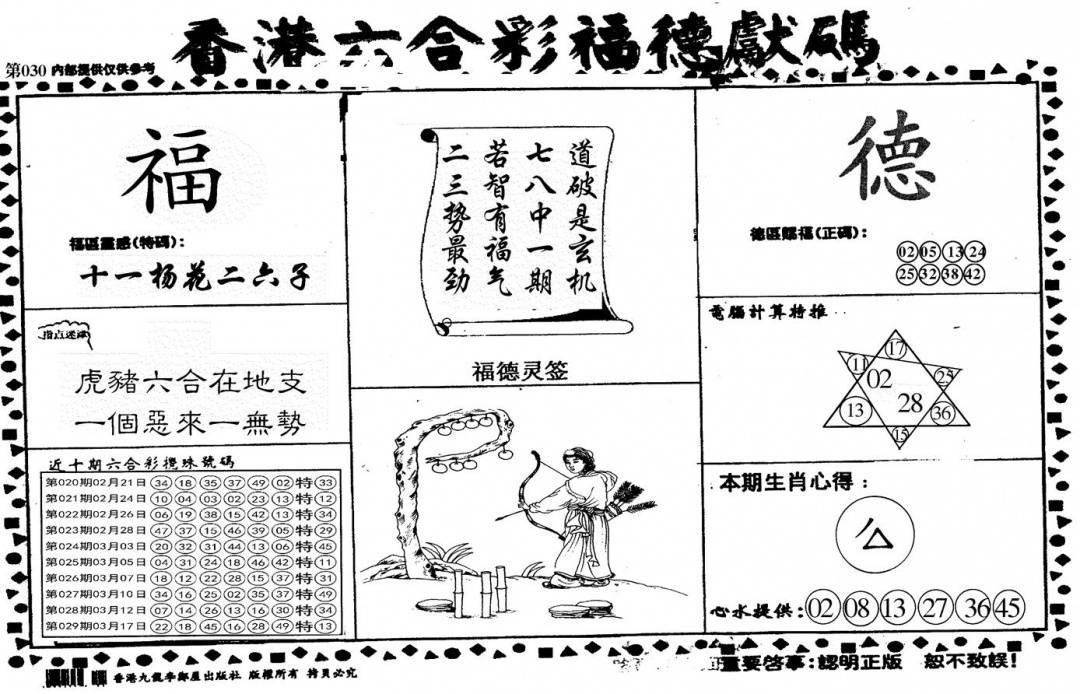 香港六合彩福德獻碼
第030 内部提供仅供参考
福
福區靈感(特碼):
十一杨花二六子
指点迷津
虎豬六合在地支
一個惡來一無勢
近十期六合彩攪珠號碼
第020期02月21日 34 18 35 37 49 02 特 33
第021期02月24日 10 04 03 02 23 13 特 12
第022期02月26日 06 19 38 15 42 13 特 34
第023期02月28日 47 37 15 46 39 05 特 29
第024期03月03日 20 32 31 44 13 06 特 45
第025期03月05日 04 31 24 18 46 42 特 11
第026期03月07日 18 12 22 28 15 37 特 31
第027期03月10日 34 16 25 02 35 37 特 49
第028期03月12日 07 14 26 13 16 30 特 34
第029期03月17日 22 18 45 16 28 49 特 13
道破是玄机
七八中一期
若智有福气
二三势最劲
福德灵签
德
德區賜福(正碼):
02 05 13 24
25 32 38 42
電腦計算特推
17
11 02 25
13 28 36
15
本期生肖心得:
心水提供: 02 08 13 27 36 45
重要啓事:認明正版 恕不致誤!
香港九龍李鄭屋出版社 版權所有 拷貝必究